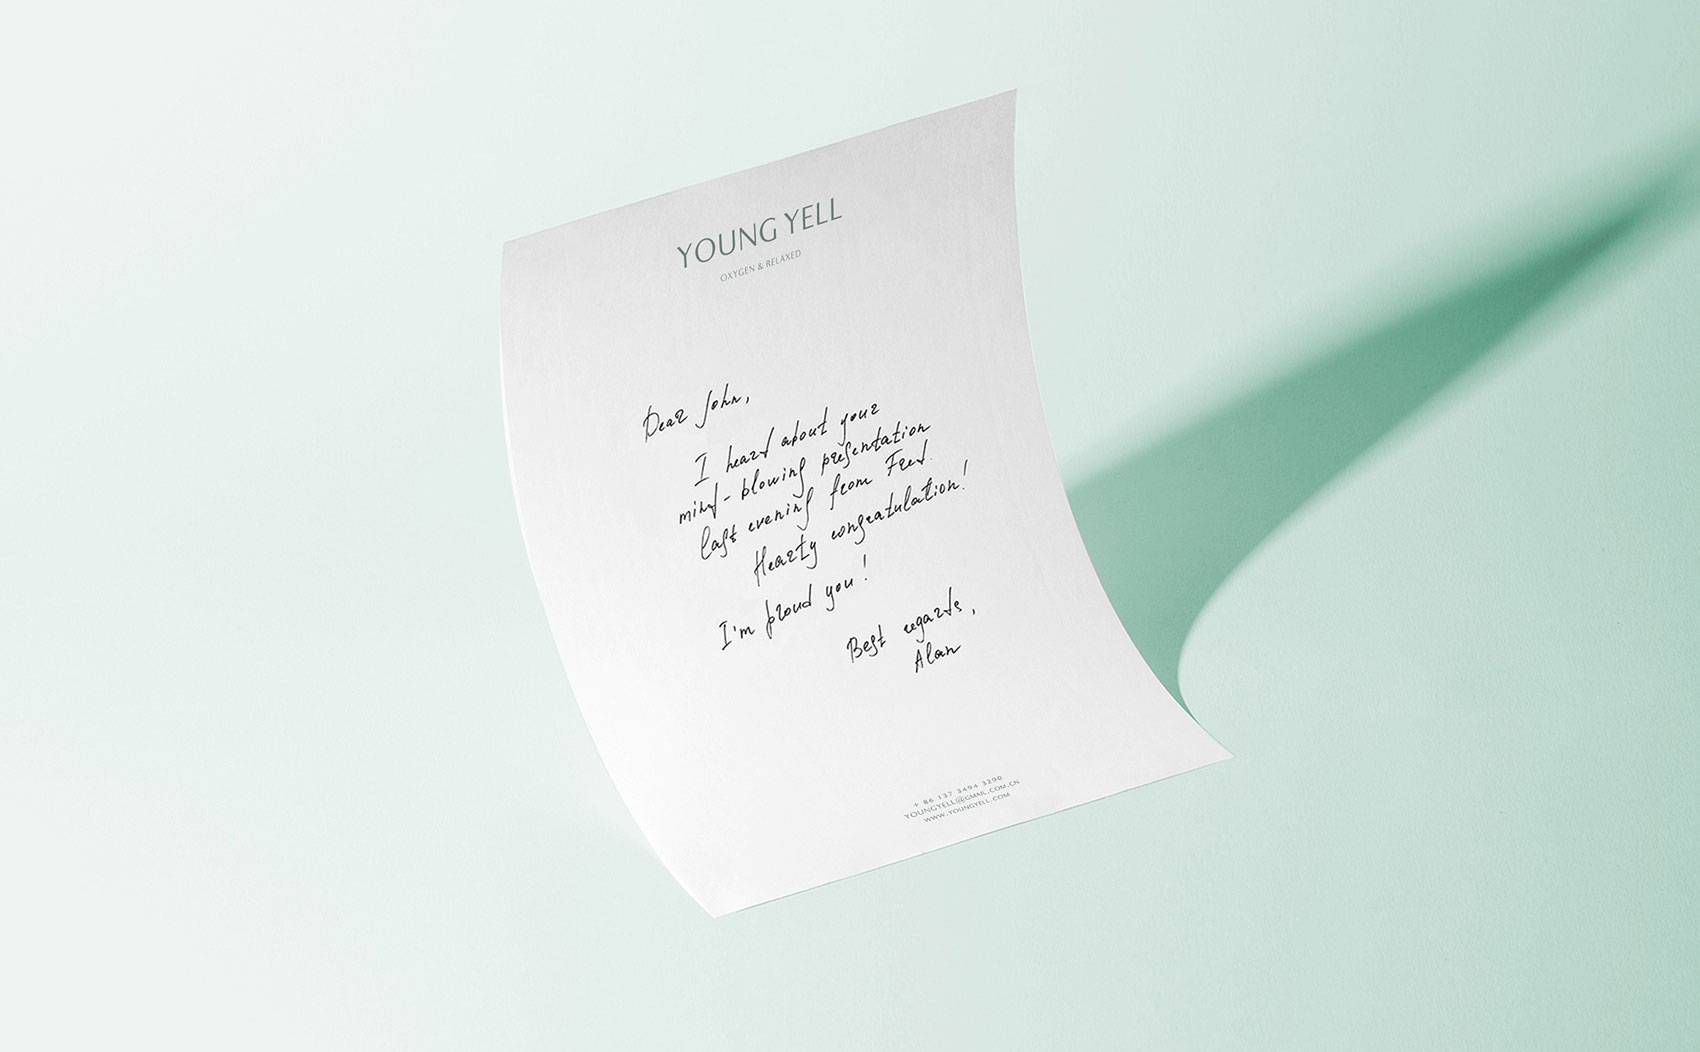 YOUNG YELL
OXYGEN & RELAXED
Dear John,
I heard about your
mind-blowing presentation
last evening from Fred.
Hearty congratulation!
I'm proud you!
Best regards,
Alan
+ 86 137 3494 3290
YOUNGYELL@GMAIL.COM.CN
WWW.YOUNGYELL.COM